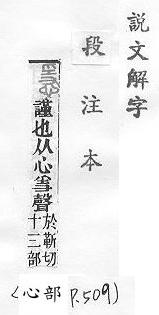 說文解字
段注本
謹也从心㥯聲
於靳切
十三部
(心部 P.509)